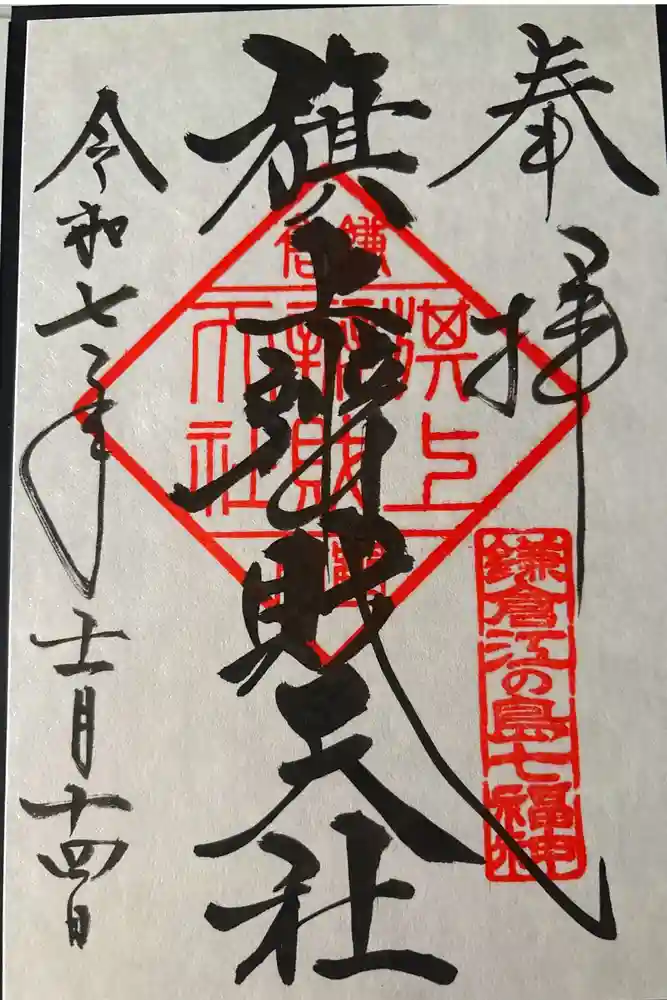 奉拝
鎌倉江の島七福神
旗上辨財天社
鎌倉
旗上
辨財
天社
令和七年十一月十四日